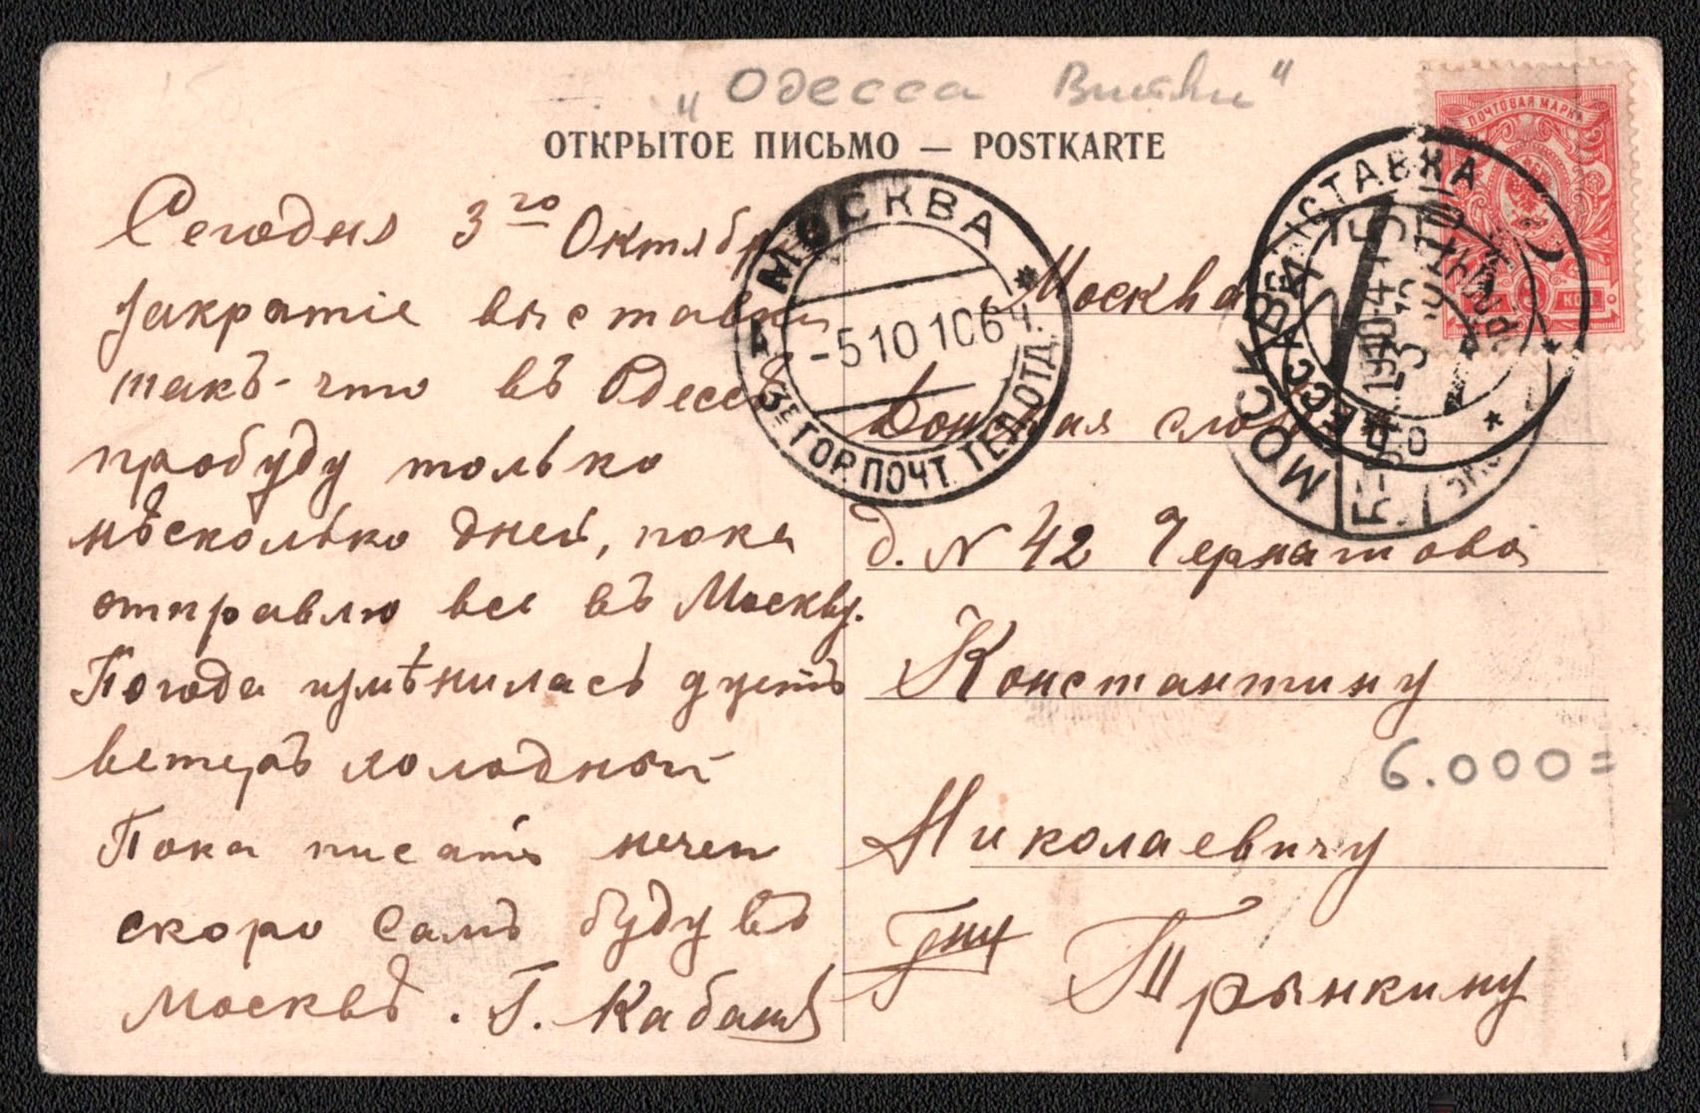 "Одесса
ОТКРЫТОЕ ПИСЬМО — POSTKARTE
ПОЧТОВАЯ МАРКА
МОСКВА
-5 10 10 6ч.
3Е ГОР. ПОЧТ. ТЕЛ. ОТД.
ВЫСТАВКА
МОСКВА
Сегодня 3го Октября
закрытіе выставки
такъ-что въ Одессѣ
пробуду только
нѣсколько дней, пока
отправлю все въ Москву.
Погода измѣнилась дуетъ
ветеръ холодный
Пока писать нечего
скоро самъ буду въ
Москвѣ. Г. Кабанов
Москва
Донская слоб.
д. N 42
Константину
Николаевичу
Гну Трынкину
6.000=